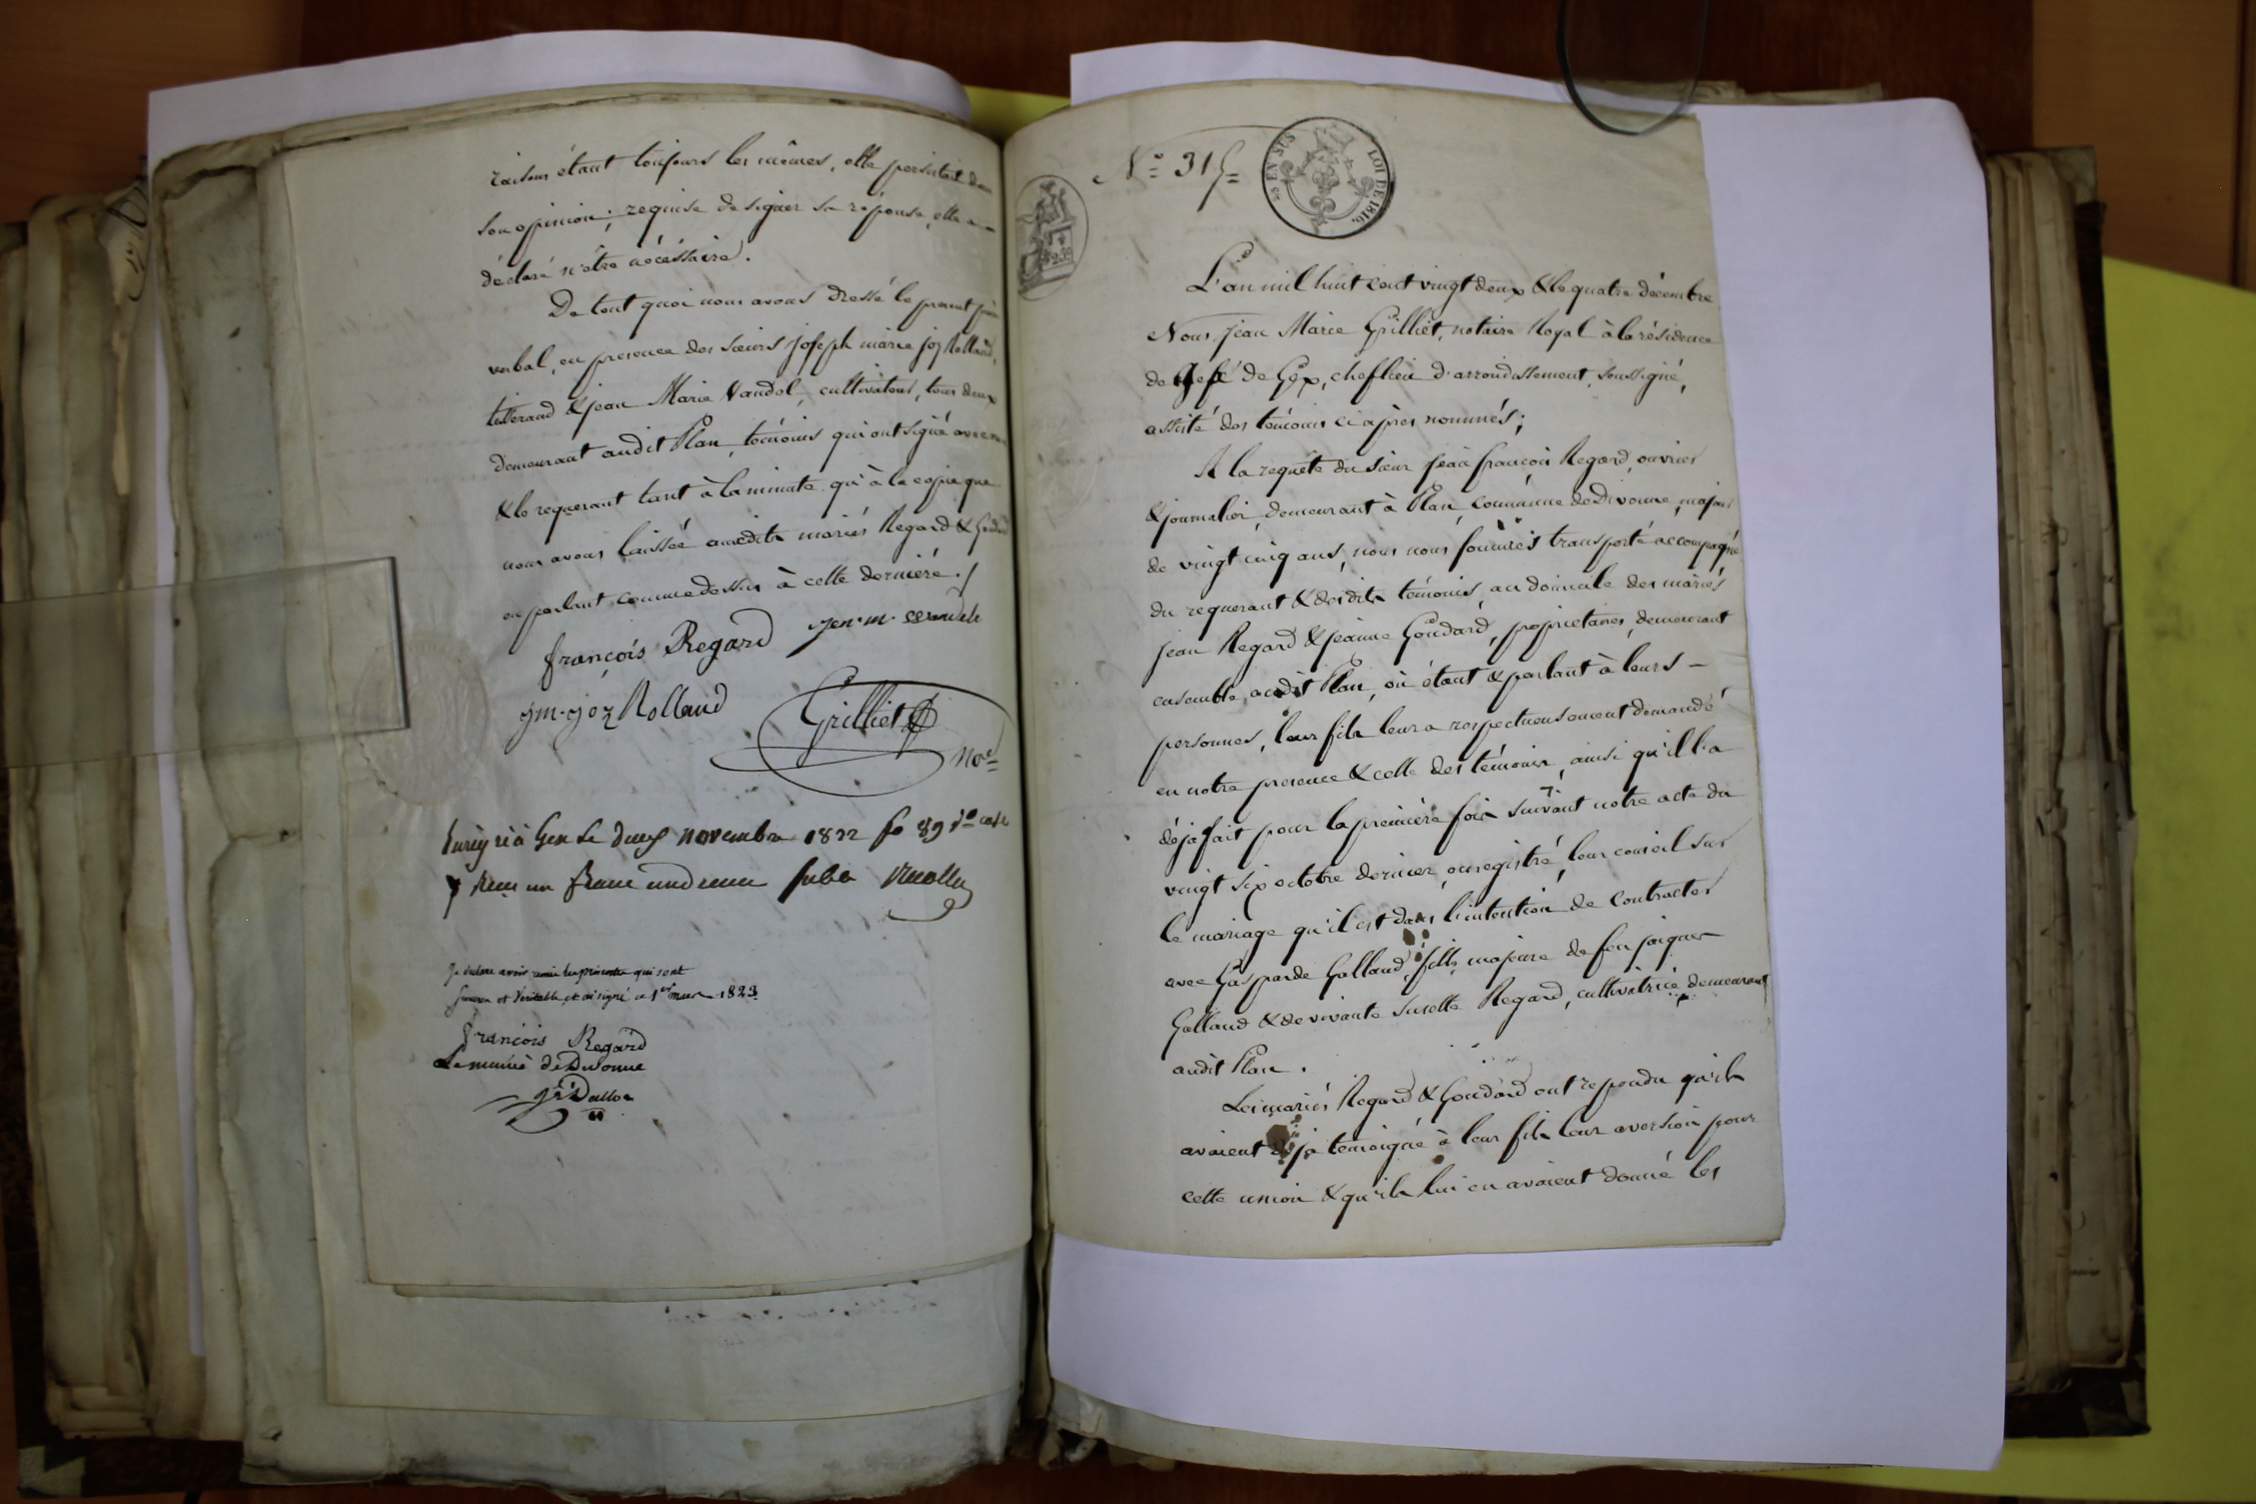 raisons étant toujours les mêmes, elle persistait dans
son opinion; requise de signer sa réponse, elle a
déclaré n'être nécéssaire.
De tout quoi nous avons dressé le présent procès
verbal, en presence des sieurs joseph marie joz Rolland,
tisserand & jean Marie Vandel, cultivateur, tous deux
demeurant audit Plan, témoins qui ont signé avec nous
& le requerant tant à la minute qu'à la copie que
nous avons laissée auxdits mariés Regard & Goudard
en parlant comme dessus à cette dernière./
françois Regard jen. m. vandele
jm. joz Rolland Grilliet
Nore
à Gex le deux novembre 1822 fo 89
un franc
Je declare avoir remis les présentes qui sont
et Veritable, et ai signé ce 1er mars 1823
François Regard
Le maire de Divonne

Nº 315
EN SUS
LOI DE 1816.
L'an mil huit cent vingt deux & le quatre décembre
Nous jean Marie Grilliet, notaire Royal à la résidence
de de Gex, cheflieu d'arrondissement, soussigné,
assisté des témoins ci après nommés;
A la requête du sieur jean françois Regard, ouvrier
& journalier, demeurant à Plan, commune de Divonne, majeur
de vingt cinq ans, nous nous sommes transporté accompagné
du requerant & desdits témoins, au domicile des mariés
jean Regard & jeanne Goudard, propriétaires, demeurant
ensemble, audit Plan, où étant & parlant à leurs –
personnes, leur fils leur a respectueusement demandé
en notre presence & celle des témoins, ainsi qu'il l'a
déjà fait pour la première fois suivant notre acte du
vingt six octobre dernier, enregistré, leur conseil sur
le mariage qu'il est dans l'intention de contracter
avec Gasparde Golland, fille majeure de feu jaques
Golland & de vivante Susette Regard, cultivatrice, demeurant
audit Plan.
Les mariés Regard & Goudard ont repondu qu'ils
avaient déjà temoigné à leur fils leur aversion pour
cette union & qu'ils lui en avaient donné les